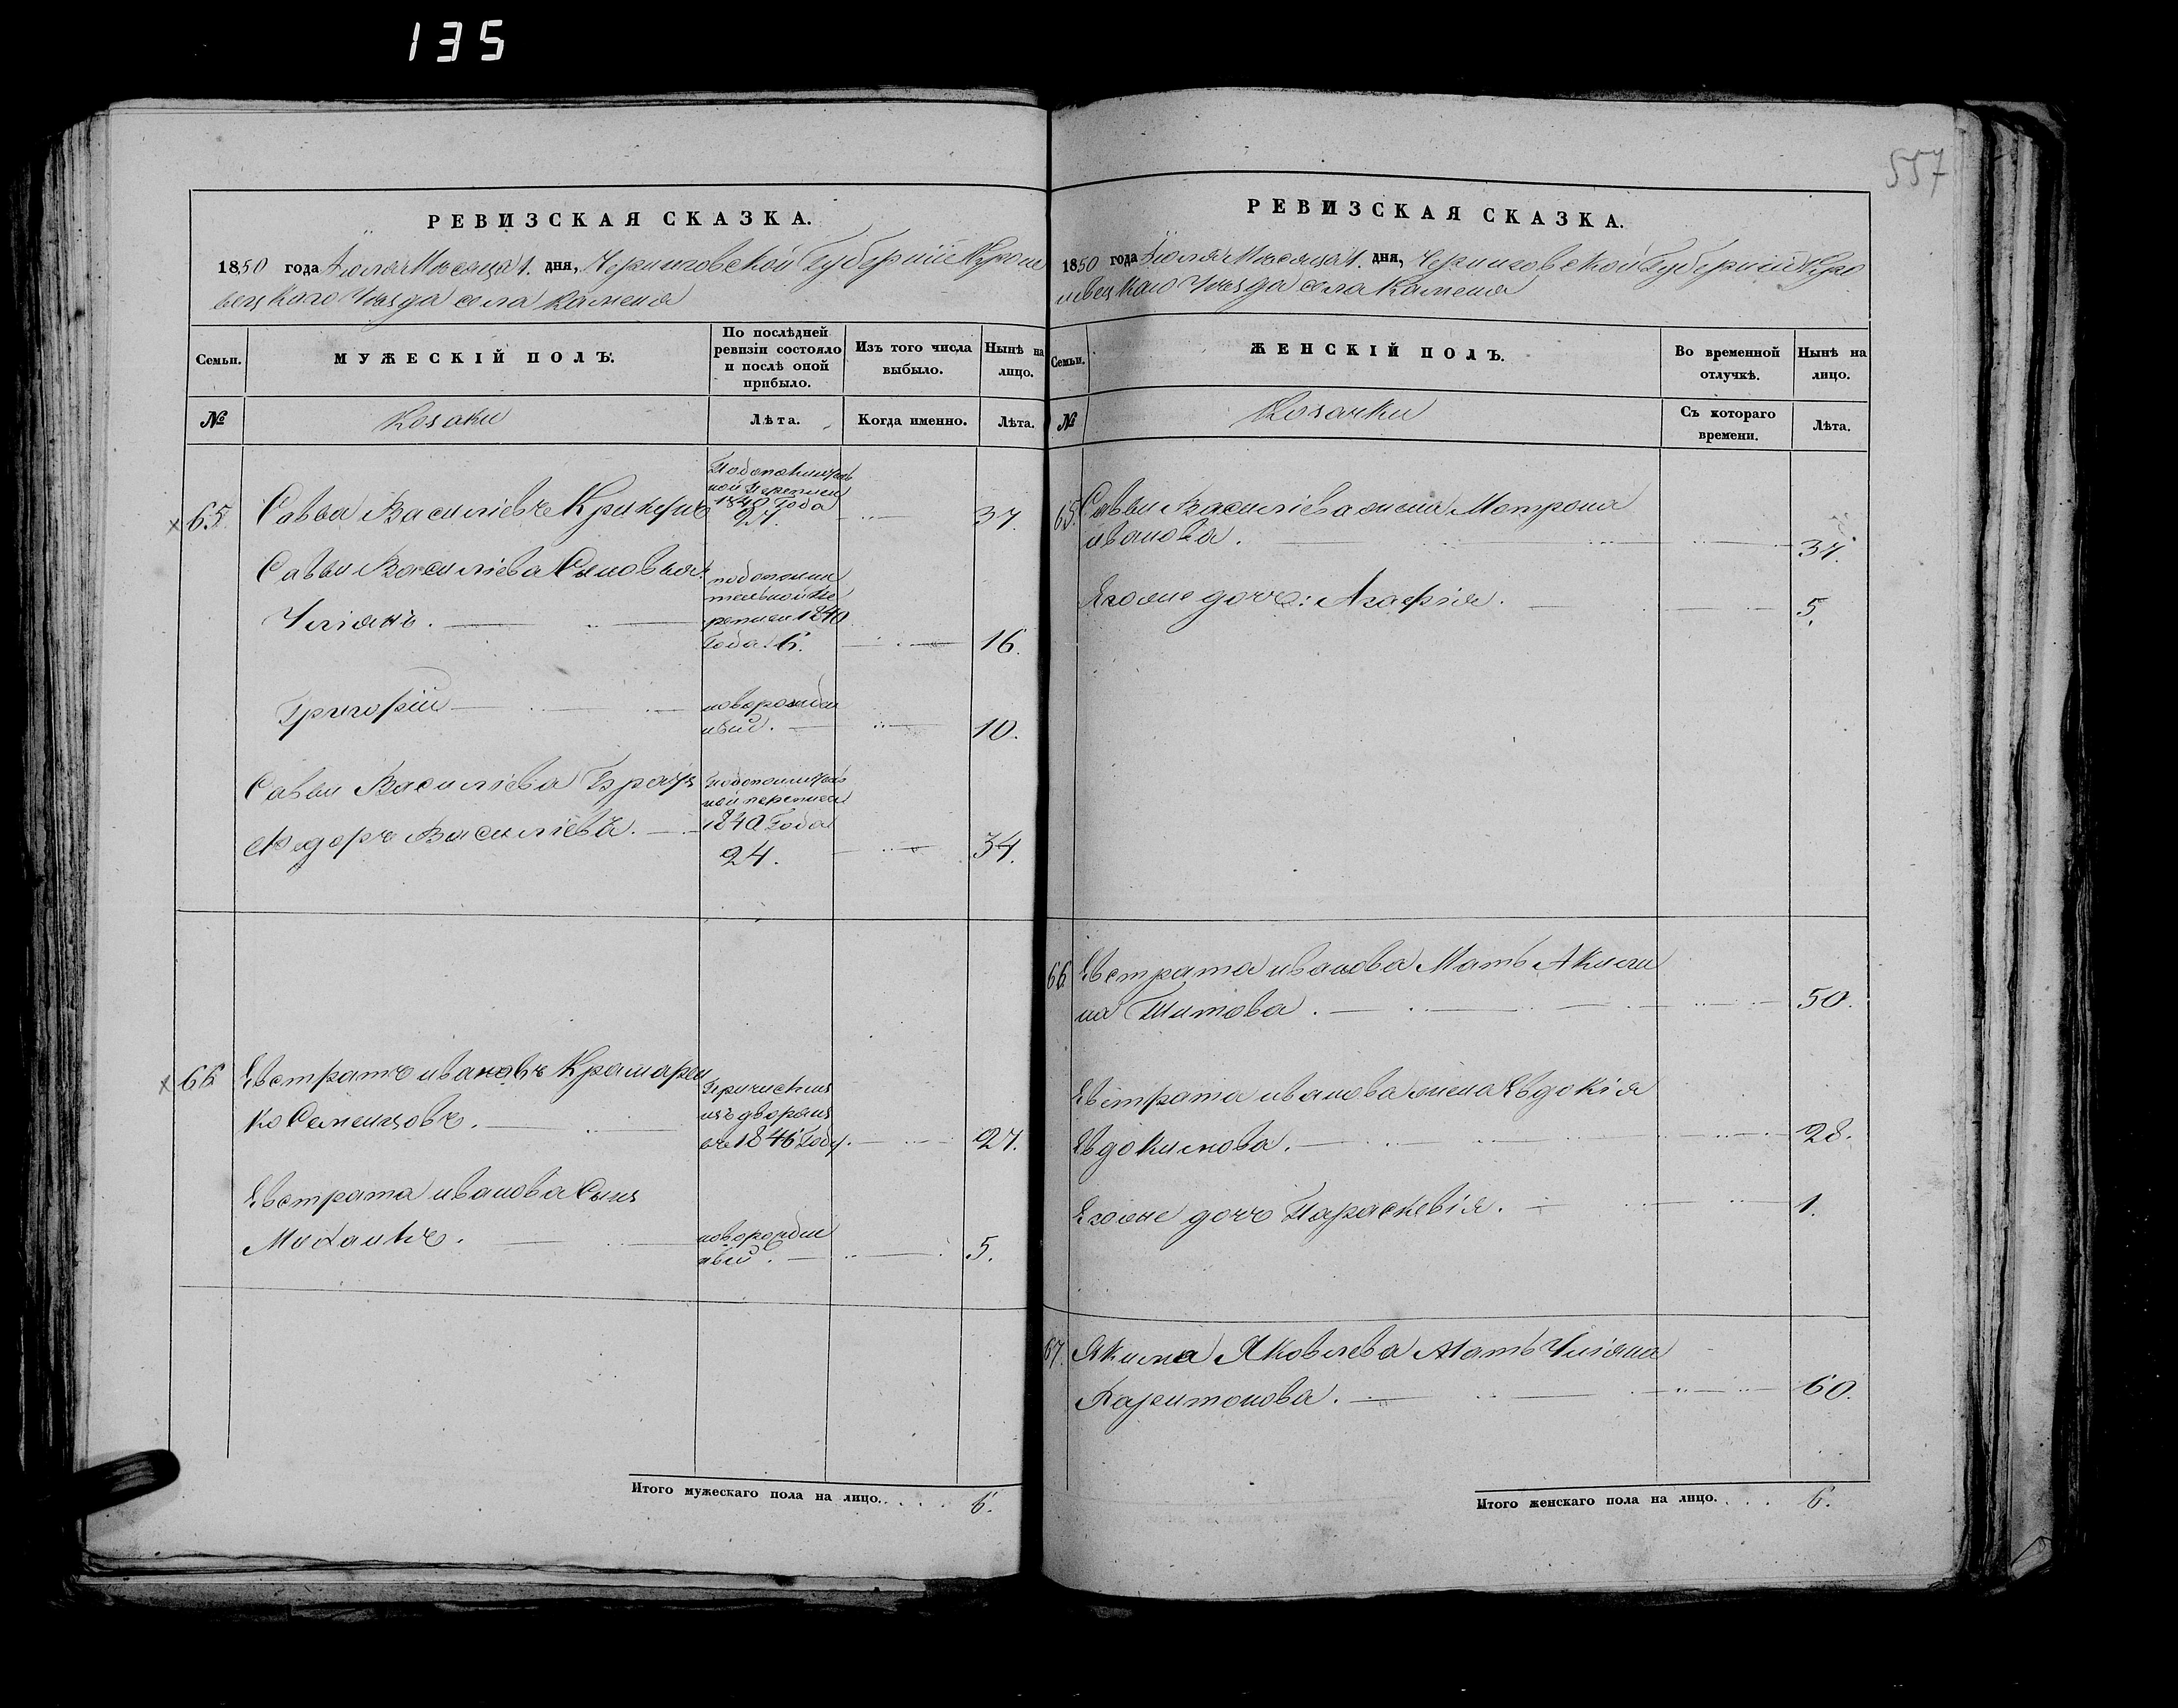 135
557
РЕВИЗСКАЯ СКАЗКА.
1850 года Іюля Месяца 1. дня, Черниговской Губерніи Кроле
вецкаго Уезда села Каменя
Семьи.
МУЖЕСКІЙ ПОЛЪ.
По послѣдней
ревизіи состояло
и послѣ оной
прибыло.
Изъ того числа
выбыло.
Нынѣ на
лицо.
№
Козаки
Лѣта.
Когда именно.
Лѣта.
65.
Савва Василіевъ
27.
37.
Саввы Василіева Сыновья:
Уліянъ.
1840
Года 6.
16.
Григорій
новорожден
ный.
10.
Саввы Василіева Братъ
Федоръ Василіевъ.
1840 Года
24.
34.
66
Евстратъ Ивановъ Крамарен
ко Семенцовъ.
1846 Году.
27.
Евстрата Иванова Сынъ
новорожден
ный.
5.
Итого мужескаго пола на лицо. . . . . 6.
РЕВИЗСКАЯ СКАЗКА.
1850 года Іюля Месяца 1. дня, Черниговской Губерніи Кро
левецкаго Уезда села Каменя
Семьи.
ЖЕНСКІЙ ПОЛЪ.
Во временной
отлучкѣ.
Нынѣ на
лицо.
№
Козачки
Съ котораго
времени.
Лѣта.
65.
Саввы Василіева жена Мотрона
Иванова.
37.
Егоже дочь: Агафія.
5.
66.
Евстрата Иванова Мать Акили
на Титова.
50.
Евстрата Иванова жена Евдокія
Евдокимова.
28.
Егоже дочь Параскевія.
1.
67.
Якима Яковлева Мать Уліяна
Харитонова.
60.
Итого женскаго пола на лицо. . . . 6.